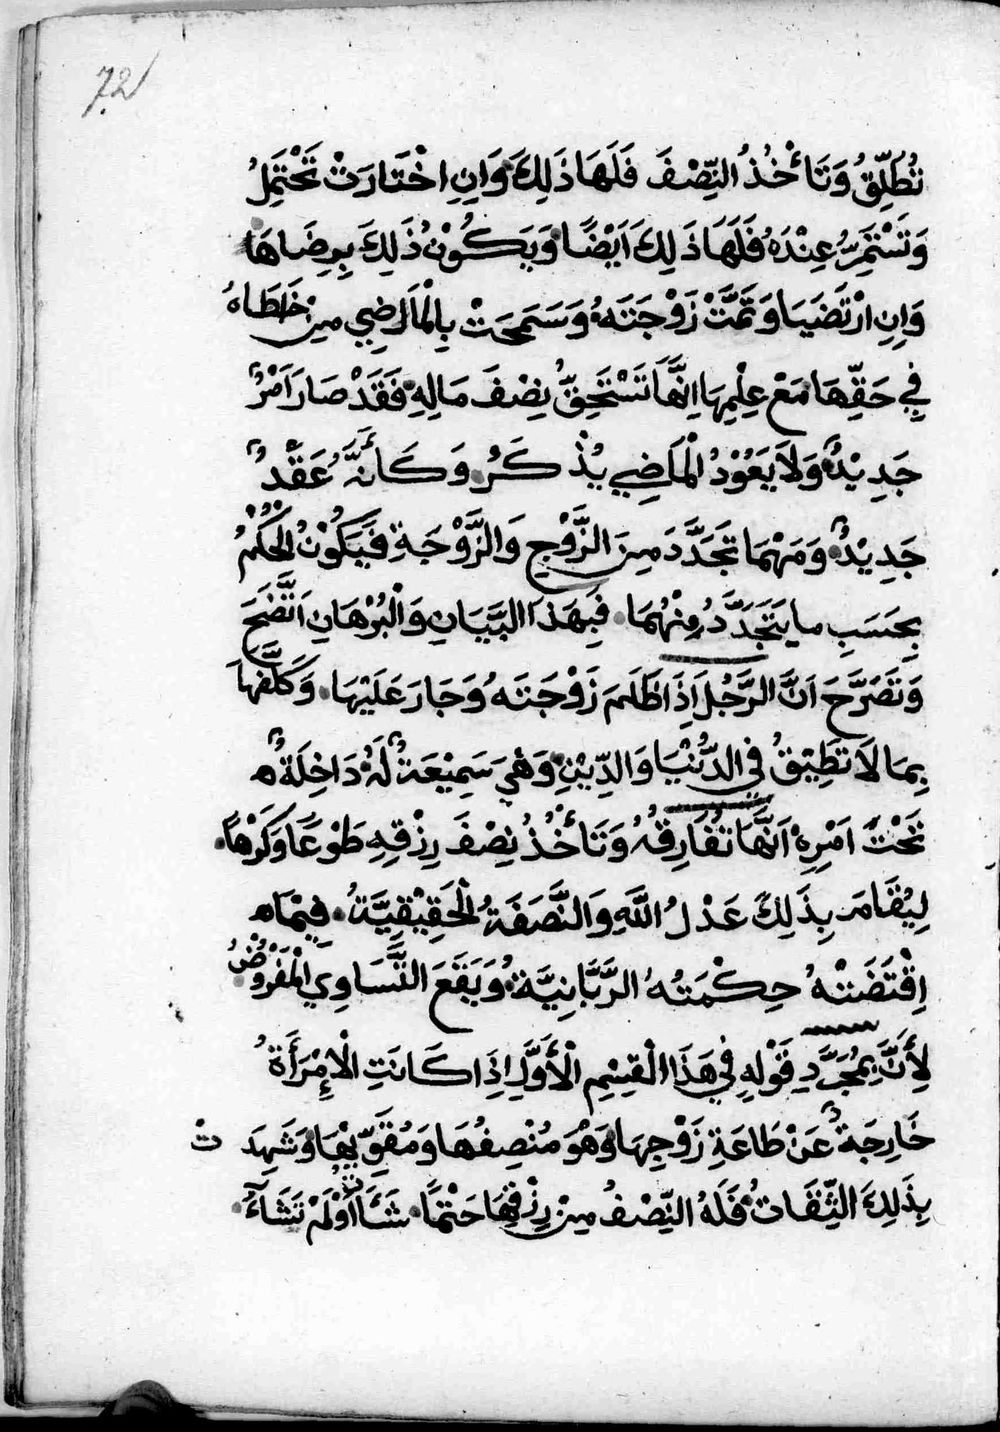 72
تُطَلِّقُ وَتَأْخُذُ النِّصْفَ فَلَهَا ذَلِكَ وَاِنِ اخْتَارَتْ تَحْتَمِلُ
وَتَسْتَمِرُّ عِنْدَهُ فَلَهَا ذَلِكَ اَيْضًا وَيَكُوْنُ ذَلِكَ بِرِضَاهَا
وَاِنِ ارْتَضَيَا وَتَمَّتْ زَوْجَتَهُ وَسَمَحَتْ بِالْمَاضِي مِنْ خَطَاهُ
فِي حَقِّهَا مَعْ عِلْمِهَا اِنَّهَا تَسْتَحِقُّ نِصْفَ مَالِهِ فَقَدْ صَارَ اَمْرٌ
جَدِيْدٌ وَلَا يَعُوْدُ الْمَاضِي يُذْكَرُ وَكَأَنَّهُ عَقْدٌ
جَدِيْدٌ وَمَهْمَا تَجَدَّدَ مِنَ الزَّوْجِ وَالزَّوْجَةِ فَيَكُوْنُ الْحُكْمُ
بِحَسَبِ مَا يَتَجَدَّدُ مِنْهُمَا فَبِهَذَا الْبَيَانِ وَالْبُرْهَانِ اتَّضَحَ
وَتَصَرَّحَ اَنَّ الرَّجُلَ اِذَا ظَلَمَ زَوْجَتَهُ وَجَارَ عَلَيْهَا وَكَلَّفَهَا
بِمَا لَا تَطِيْقُ فِي الدُّنْيَا وَالدِّيْنِ وَهْيَ سَمِيْعَةٌ لَهُ دَاخِلَةٌ
تَحْتَ اَمْرِهِ اَنَّهَا تُفَارِقُهُ وَتَأْخُذُ نِصْفَ رِزْقِهِ طَوْعًا وَكَرْهًا
لِيُقَامَ بِذَلِكَ عَدْلُ اللَّهِ وَالنَّصَفَةُ الْحَقِيْقِيَّةُ فِيْمَا
اِقْتَضَتْهُ حِكْمَتُهُ الرَّبَّانِيَّةُ وَيَقَعَ التَّسَاوِي الْمَفْرُوْضُ
لِأَنَّ بِمُجَرَّدِ قَوْلِهِ فِي هَذَا الْقِسْمِ الْأَوَّلِ اِذَا كَانَتِ الْإِمْرَأَةُ
خَارِجَةٌ عَنْ طَاعَةِ زَوْجِهَا وَهُوَ مُنْصِفُهَا وَمُقَوِّيْهَا وَشَهِدَتْ
بِذَلِكَ الثِّقَاتُ فَلَهُ النِّصْفُ مِنْ رِزْقِهَا حَتْمًا شَأَتْ اَوْ لَمْ تَشَاءُ